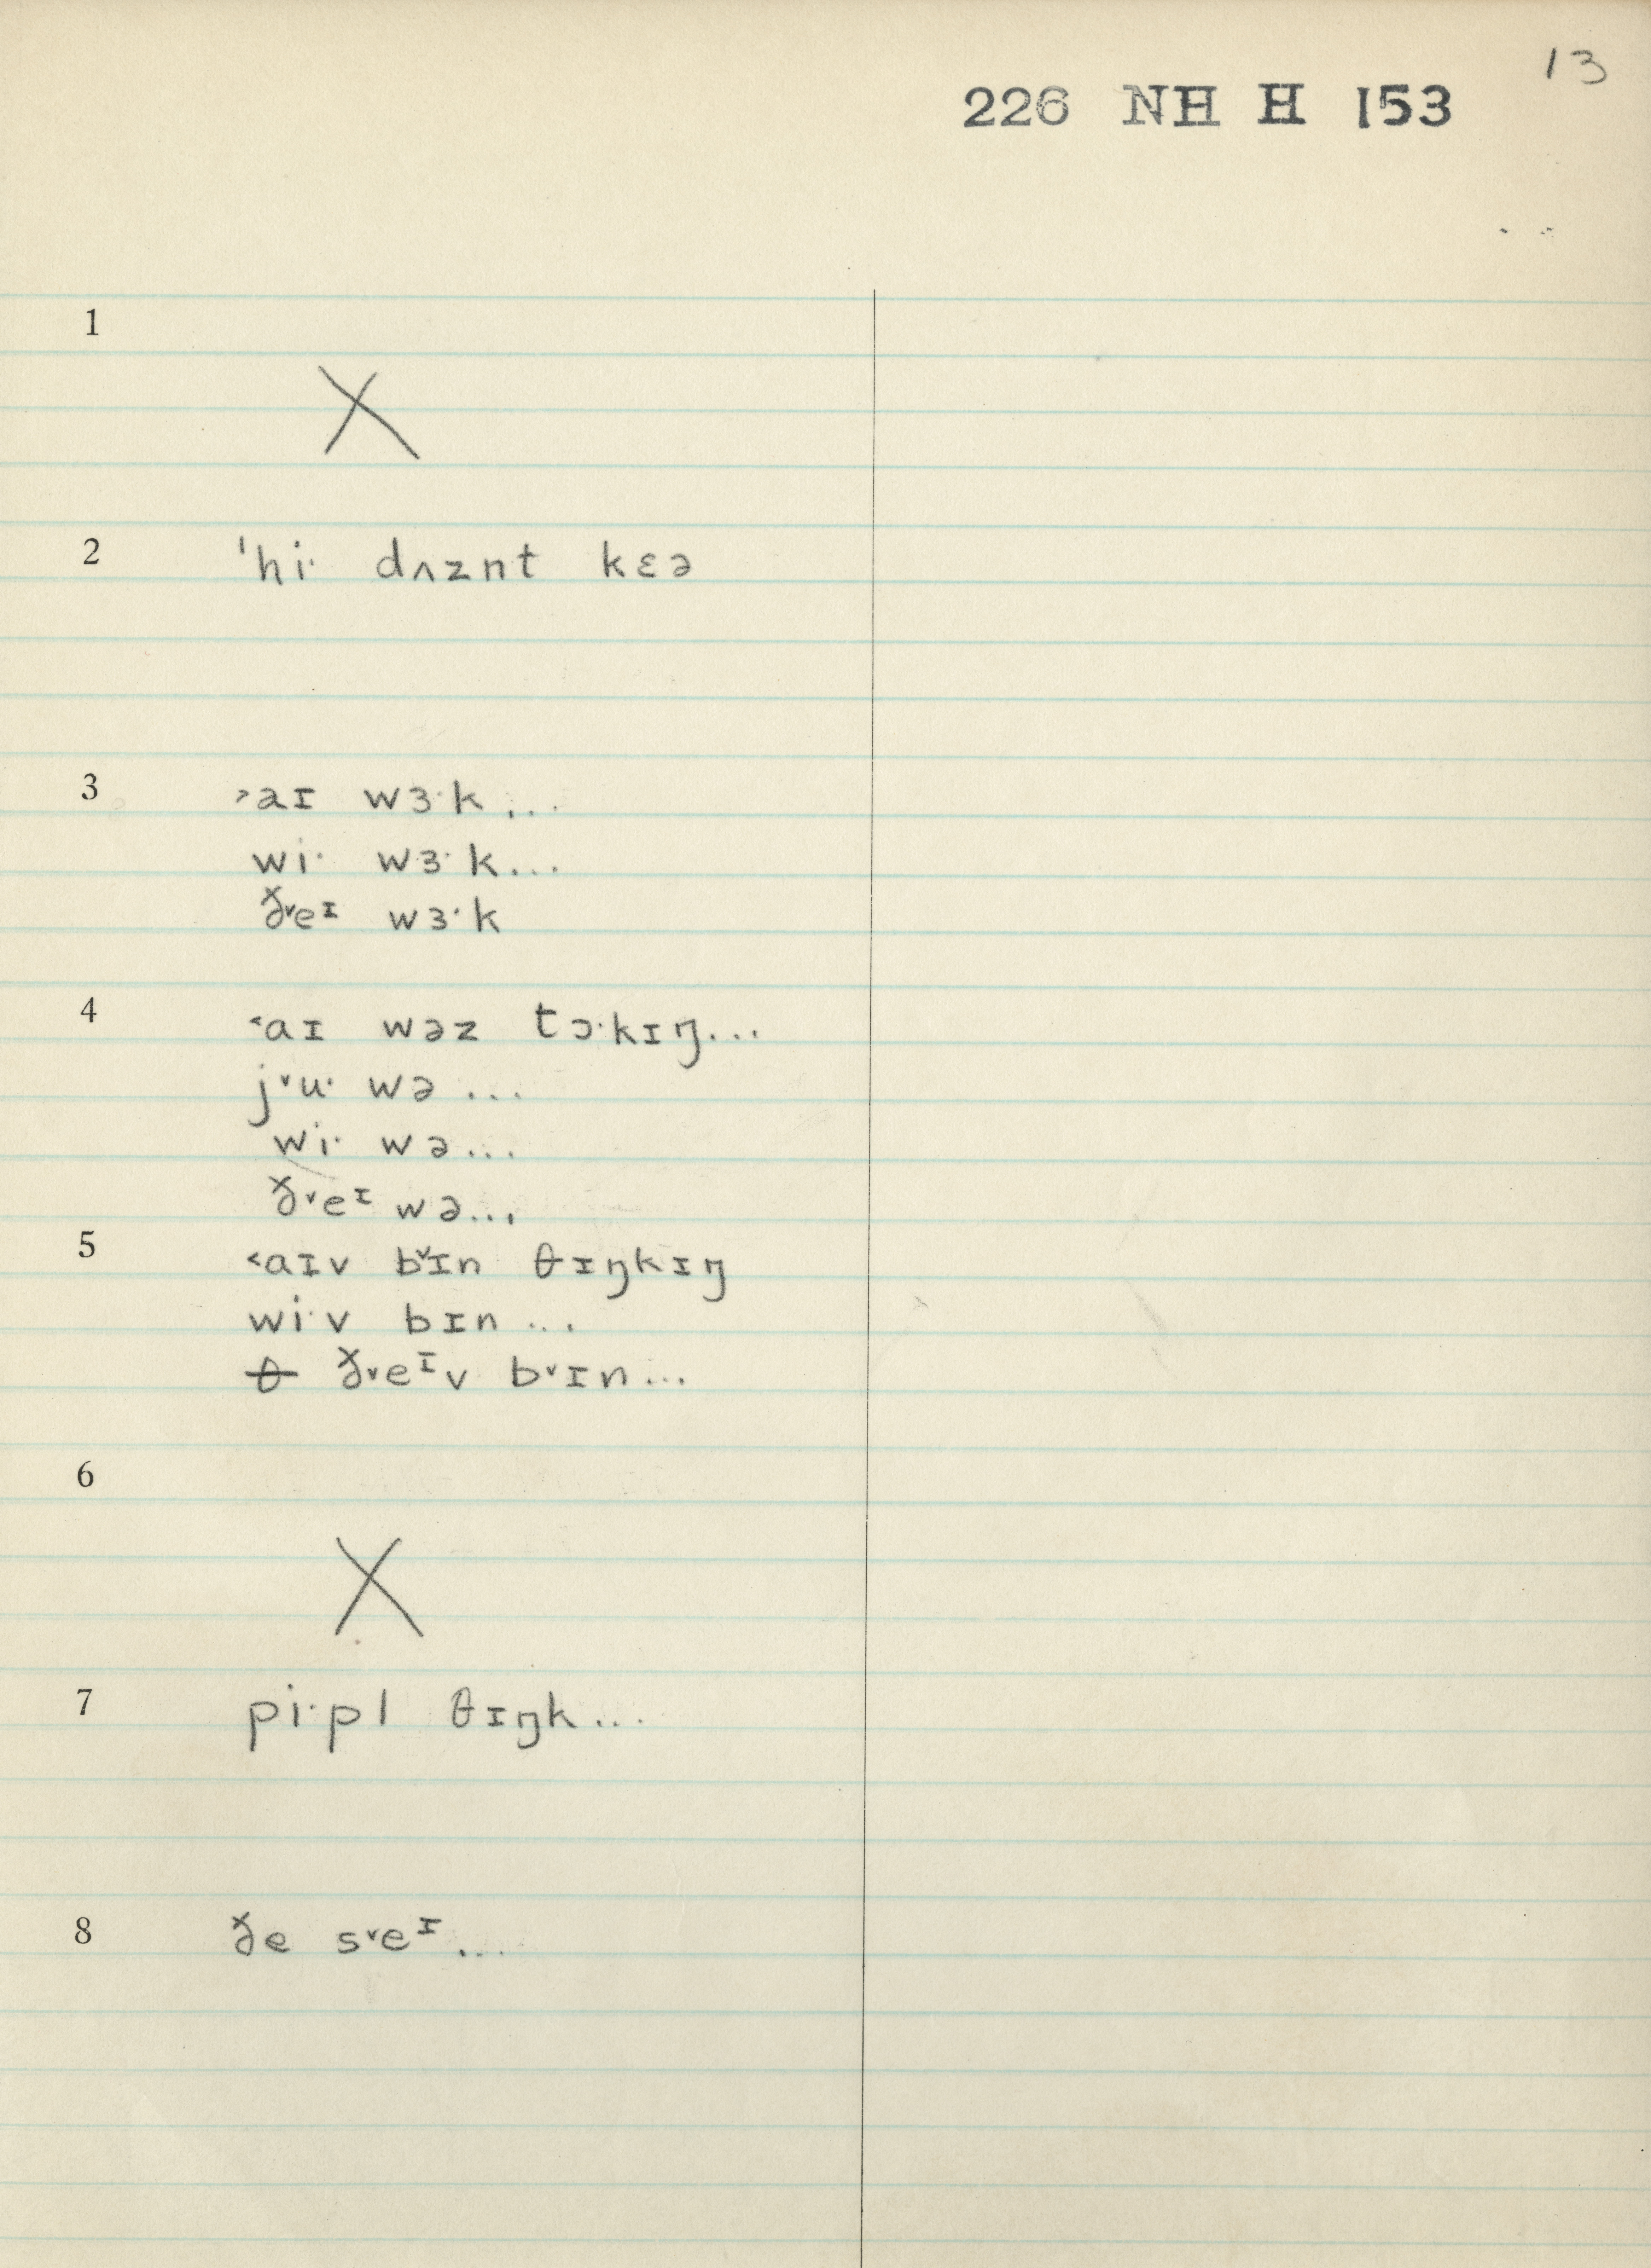 13
226 NH H 153
1
X
2 ˈhiˑ dʌznt kɛə
3 ˃aɪ wɜˑk...
wiˑ wɜˑk...
ð˅eᶦ wɜˑk
4 ˂aɪ wəz tɔˑkɪŋ...
j˅uˑ wə...
wiˑ wə...
ð˅eᶦ wə...
5 ˂aɪv b˅ɪn θɪŋkɪŋ
wiˑv bɪn...
θ ð˅eᶦv b˅ɪn...
6
X
7 piˑpl θɪŋk...
8 ðe s˅eᶦ...